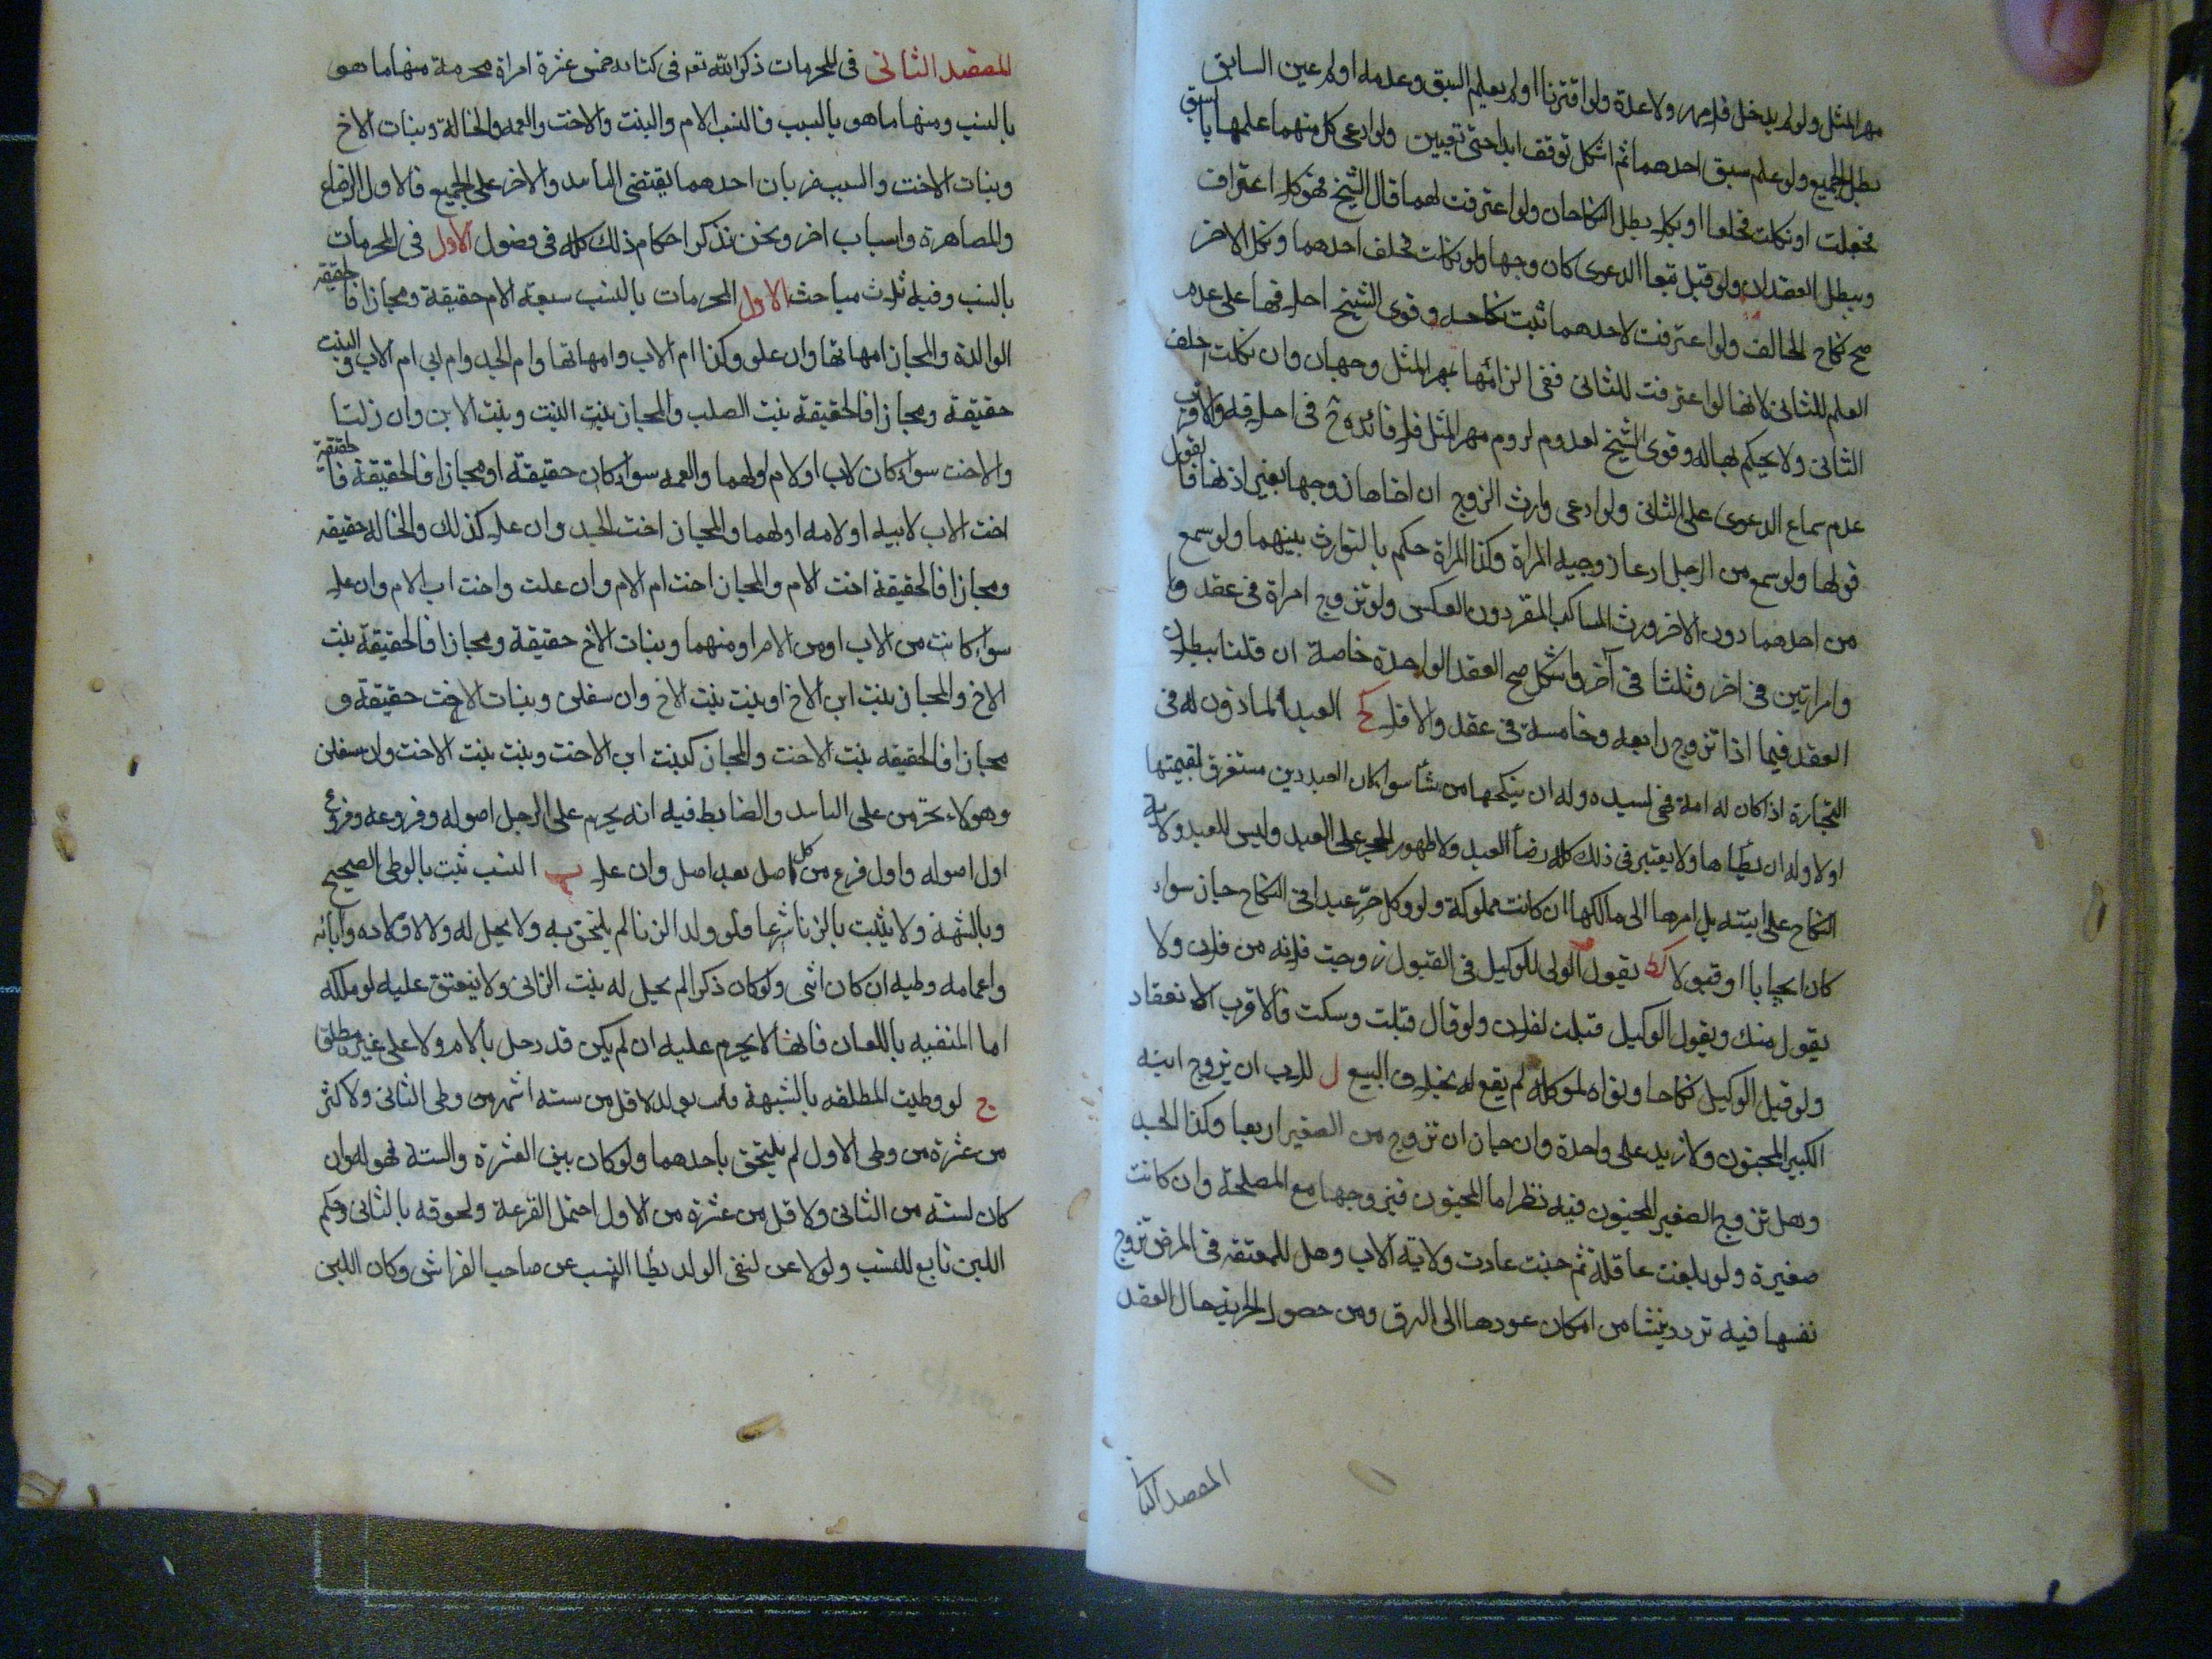 مهر المثل ولو لم يدخل فلا مهر ولا عدة ولو اقترنا او لم يعلم السبق وعدمه او لم عين السابق
بطل الجميع ولو علم سبق احدهما ثم اشكل توقف ابدا حتى تعيين ولو ادعى كل منهما علمها باسبق
فحلفت او نكلت فحلفا او نكلا بطل النكاحان ولو اعترفت لهما قال الشيخ فهو كلا اعتراف
ويبطل العقدان ولو قيل تبعا الدعوى كان وجها ولو نكلت فحلف احدهما ونكل الاخر
صح نكاح الحالف ولو اعترفت لاحدهما ثبت نكاحه وقوى الشيخ احلافها على عدم
العلم للثاني لانها لو اعترفت للثاني ففى الزامها بمهر المثل وجهان وان نكلت احلف
الثاني ولا يحكم بها له وقوى الشيخ لعدم لزوم مهر المثل فلا فائدة ح في احلافه والاقرب
عدم سماع الدعوى على الثاني ولو ادعى وارث الزوج ان اخاها زوجها بغير اذنها فالقول
قولها ولو سمع من الرجل ادعا زوجيه المراة وكذا المراة حكم بالتوارث بينهما ولو سمع
من احدهما دون الاخر ورث الساكت المقر دون العكس ولو تزوج امراة في عقد وا
وامراتين في اخر وثلثا في آخر واشكل صح العقد الواحدة خاصة ان قلنا ببطلان
العقد فيما اذا تزوج رابعه وخامسة في عقد والا فلا كح العبد الماذون له في
التجارة اذا كان له امة فهي لسيده وله ان ينكحها من شا سوا كان العبد دين مستغرق لقيمتها
او لا وله ان يطاها ولا يعتبر في ذلك كله رضا العبد ولا ظهور الحجر على العبد وليس للعبد ولاية
النكاح على ابنته بل امرها الى مالكها ان كانت مملوكة ولو وكل حرّ عبدا في النكاح جاز سواء
كان ايجابا او قبولا كط يقول الولى للوكيل في القبول زوجت فلانه من فلان ولا
يقول منك ويقول الوكيل قبلت لفلان ولو قال قبلت وسكت فالاقرب الانعقاد
ولو قبل الوكيل نكاحا ونواه لموكله لم يقع له بخلاف البيع ل للاب ان يزوج ابنه
الكبير المجنون ولا يزيد على واحدة وان جاز ان تزوج من الصغير اربعا وكذا الجد
وهل تزوج الصغير المجنون فيه نظر اما المجنون فيزوجها مع المصلحة وان كانت
صغيرة ولو بلغت عاقلة ثم جنت عادت ولاية الاب وهل للمعتقه في المرض تزوج
نفسها فيه تردد ينشا من امكان عودها الى الرق ومن حصول الحرية حال العقد
المقصد الثا
المقصد الثاني في المحرمات ذكر الله تعه في كتابه خمس عشرة امراة محرمة منها ما هو
بالنسب ومنها ما هو بالسبب فالنسب الام والبنت والاخت والعمه والخالة وبنات الاخ
وبنات الاخت والسبب ضربان احدهما يقتضى التابيد والاخر على الجميع فالاول الرضاع
والمصاهرة واسباب اخر ونحن نذكر احكام ذلك كله في فصول الاول في المحرمات
بالنسب وفيه ثلث مباحث الاول المحرمات بالنسب سبعة الام حقيقة ومجازا فالحقيقة
الوالدة والمجاز امهاتها وان علو وكذا ام الاب وامهاتها وام الجد وام ابي ام الاب والبنت
حقيقة ومجازا فالحقيقة بنت الصلب والمجاز بنت البنت وبنت الابن وان نزلتا
والاخت سواء كان لاب او لام او لهما والعمه سواء كان حقيقة او مجازا فالحقيقة فالحقيقة
اخت الاب لابيه او لامه او لهما والمجاز اخت الجد وان علا كذلك والخاله حقيقه
ومجازا فالحقيقة اخت الام والمجاز اخت ام الام وان علت واخت اب الام وان علا
سواء كانت من الاب او من الام او منهما وبنات الاخ حقيقة ومجازا فالحقيقة بنت
الاخ والمجاز بنت ابن الاخ او بنت بنت الاخ وان سفلن وبنات الاخت حقيقة و
مجازا فالحقيقه بنت الاخت والمجاز كبنت ابن الاخت وبنت بنت الاخت وان سفلن
وهولاء يحرمن على التابيد والضابط فيه انه يحرم على الرجل اصوله وفروعه وفروع
اول اصوله واول فرع من كل اصل بعد اصل وان علا ب النسب ثبت بالوطى الصحيح
وبالشبهة ولا يثبت بالزنا شرعا فلو ولد الزنا لم يلتحق به ولا يحل له ولا لاولاده وابائه
واعمامه وطيه ان كان انثى ولو كان ذكرا لم يحل له بنت الزاني ولا ينعتق عليه لو ملكه
اما المنفيه باللعان فانها لا يحرم عليه ان لم يكن قد دخل بالام ولا على غيره مطلقا
ج لو وطيت المطلقه بالشبهة فاتت بولد لاقل من سته اشهر من وطى الثاني ولاكثر
من عشرة من وطى الاول لم يلتحق باحدهما ولو كان بين العشرة والستة فهو له وان
كان لستة من الثاني ولاقل من عشرة من الاول احتمل القرعة ولحوقه بالثاني وحكم
اللبن تابع للنسب ولو لاعن لنفى الولد بطا النسب عن صاحب الفراش وكان اللبن